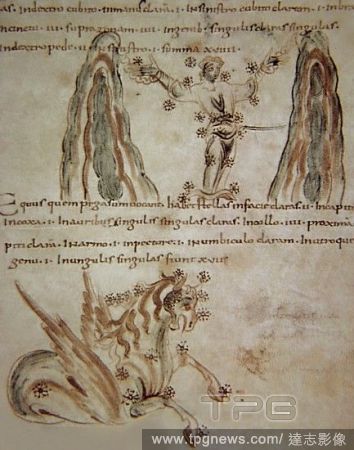 as. Indextro cubito. I. Inmanu claram. I. In sinistro cubito claram. I. In
cinctu. III. supra zonam. III. In singulis claras singulas.
In dextro pede. II. sinistro. I. summa xviiii
Equus quem pegasum vocant. habet stellas in facie claras. II. Incapite
Incoxa. I. Inauribus singulis singulas claras. Incollo. IIII. proxima
claram. Inarmo. I. Inpectore. I. Inumbiculo claram. Inutroque
genu. I. Inungulis singulas fiunt xviii
TPG
www.tpgnews.com/ 達志影像